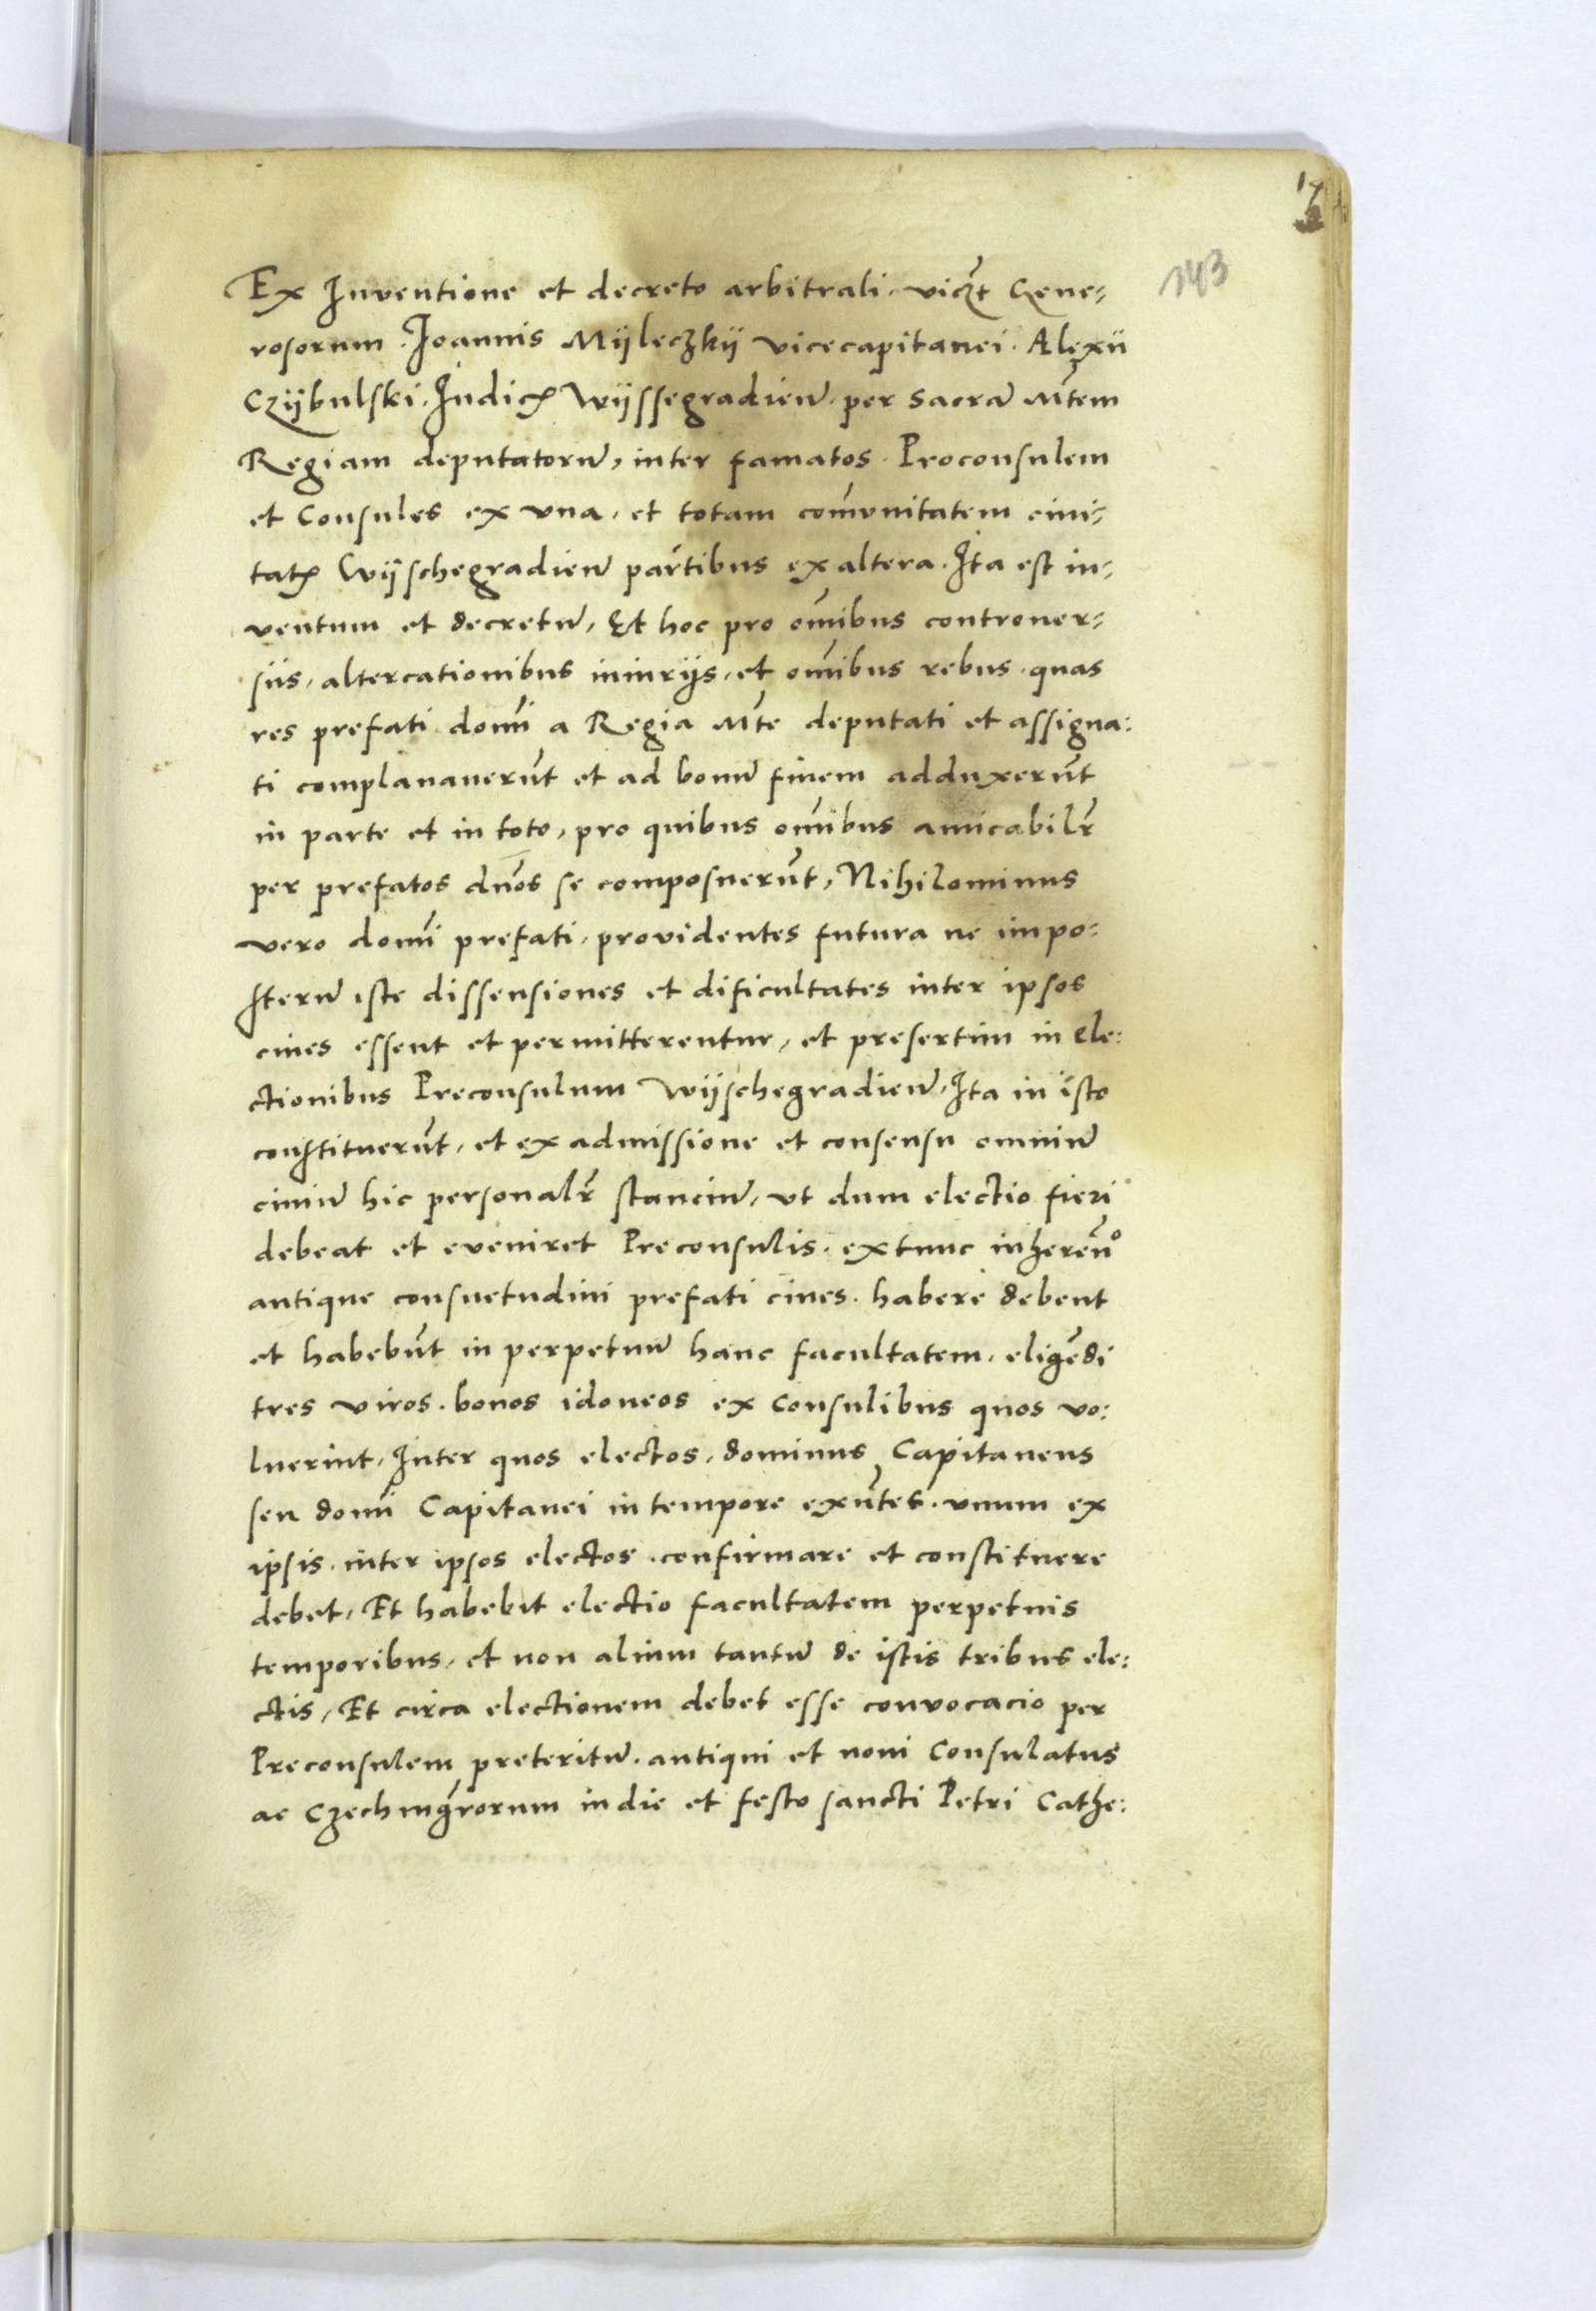 143
Ex Inventione et decreto arbitrali. viczt Gene-
rosorum. Joannis Mÿleczkÿ vicecapitanei. Alexii
Czÿbulski. Iudicis Wÿssegradien̄. per Sacrā Mtem
Regiam deputatorū, inter famatos. Proconsulem
et Consules ex vna, et totam com̄unitatem ciui-
tatis Wÿschegradien̄ partibus ex altera. Ita est in-
ventum et decretū, Et hoc pro om̄ibus controuer-
siis, altercationibus iniurijs, et om̄ibus rebus. quas
res prefati domī a Regia Mte deputati et assigna:
ti complanauerūt et ad bonū finem adduxerūt
in parte et in toto, pro quibus om̄ibus amicabilr̄
per prefatos dn̄os se composuerūt, Nihilominus
vero domī prefati, providentes futura ne impo:
sterū iste dissensiones et dificultates inter ipsos
ciues essent et permitterentur, et presertim in ele:
ctionibus Preconsulum Wÿschegradien̄, Ita in isto
constituerūt, et ex admissione et consensu omniū
ciuiū hic personalr̄ stanciū, vt dum electio fieri
debeat et eveniret Preconsulis. extunc inheren̄o
antique consuetudini prefati ciues. habere debent
et habebūt in perpetuū hanc facultatem, eligēdi
tres viros. bonos idoneos ex Consulibus quos vo:
luerint, Inter quos electos, dominus Capitaneus
seu domī Capitanei in tempore exn̄tes. vnum ex
ipsis. inter ipsos electos. confirmare et constituere
debet, Et habebit electio facultatem perpetuis
temporibus, et non alium tantū de istis tribus ele:
ctis, Et circa electionem debet esse convocacio per
Preconsulem preteritū. antiqui et noui Consulatus
ac Czechmgr̄orum in die et festo sancti Petri Cathe: